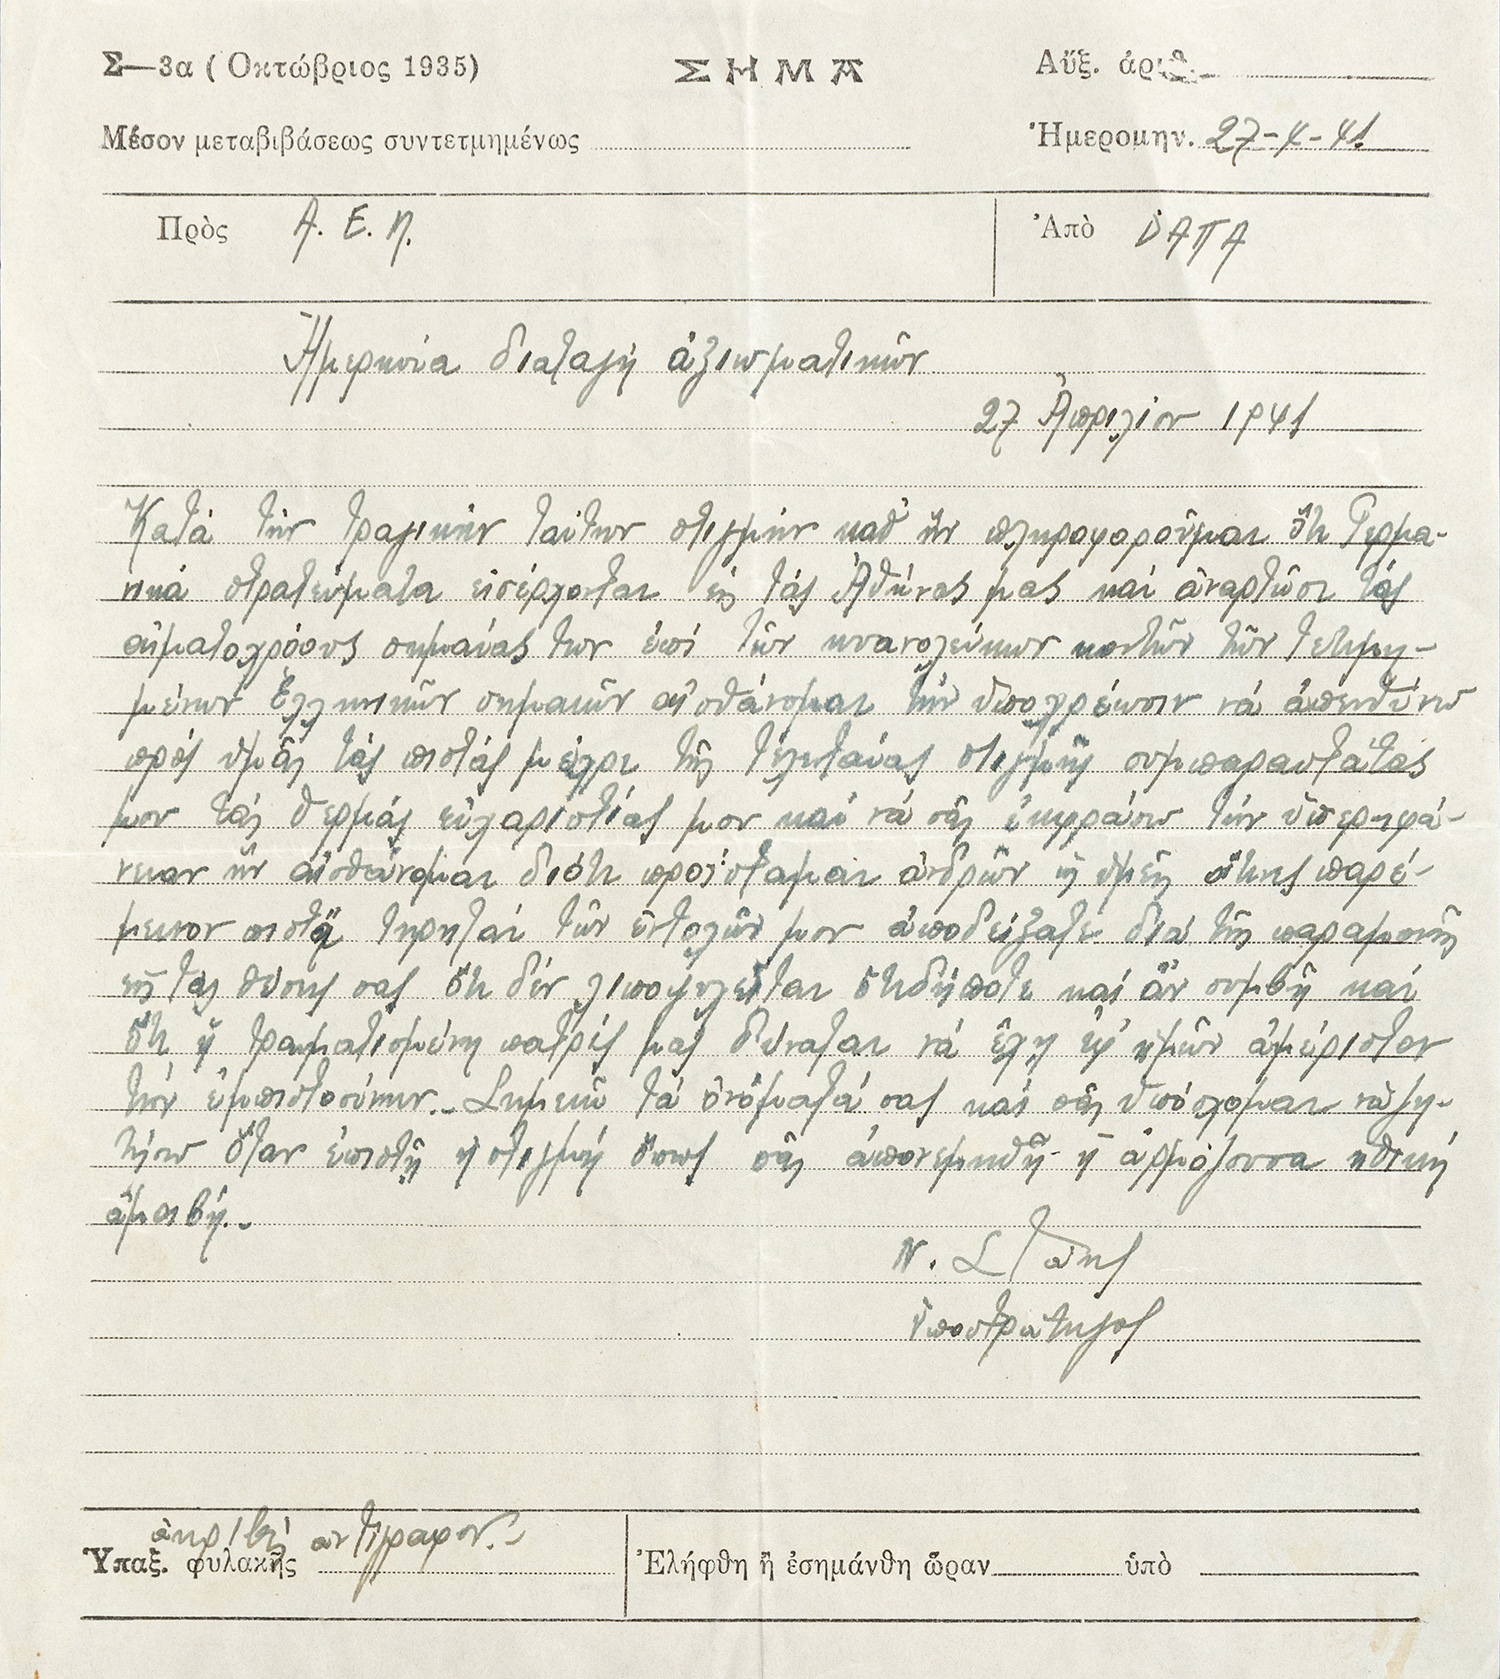 Σ—3α ( Ὀκτώβριος 1935)
ΣΗΜΑ
Αὔξ. ἀριθ.
Μέσον μεταβιβάσεως συντετμημένως
Ἡμερομην. 27-4-41.
Πρὸς Α. Ε. Π.
Ἀπὸ ὙΑΠΑ
Ἡμερησία διαταγή ἀξιωματικῶν
27 Ἀπριλίου 1941
Κατά τήν τραγικήν ταύτην στιγμήν καθ' ἥν πληροφοροῦμαι ὅτι Γερμα-
νικά στρατεύματα εἰσέρχονται εἰς τάς Ἀθήνας μας καί ἀναρτῶσι τάς
αἱματοχρόους σημαίας των ἐπί τῶν κυανολεύκων κοντῶν τῶν τετιμη-
μένων Ἑλληνικῶν σημαιῶν αἰσθάνομαι τήν ὑποχρέωσιν νά ἀπευθύνω
πρός ὑμᾶς τάς πιστάς μέχρι τῆς τελευταίας στιγμῆς συμπαραστάτας
μου τάς θερμάς εὐχαριστίας μου καί νά σᾶς ἐκφράσω τήν ὑπερηφά-
νειαν ἥν αἰσθάνομαι διότι προΐσταμαι ἀνδρῶν ὡς ὑμεῖς οἵτινες παρέ-
μεινον πιστοί τηρηταί τῶν ἐντολῶν μου ἀποδείξατε διά τῆς παραμονῆς
εἰς τάς θέσεις σας ὅτι δέν λιποψυχεῖται ὁτιδήποτε καί ἄν συμβῇ καί
ὅτι ἡ τραυματισμένη πατρίς μας δύναται νά ἔχῃ ἐφ' ἡμῶν ἀμέριστον
τήν ἐμπιστοσύνην.- Σημειῶ τά ὀνόματά σας καί σᾶς ὑπόσχομαι νά ζη-
τήσω ὅταν ἐπιστῇ ἡ στιγμή ὅπως σᾶς ἀπονεμηθῇ ἡ ἁρμόζουσα ἠθική
ἀμοιβή.-
Ν. Στάικος
ὑποστράτηγος
ἀκριβές ἀντίγραφον.-
Ὑπαξ. φυλακῆς
Ἐλήφθη ἢ ἐσημάνθη ὥραν ὑπὸ